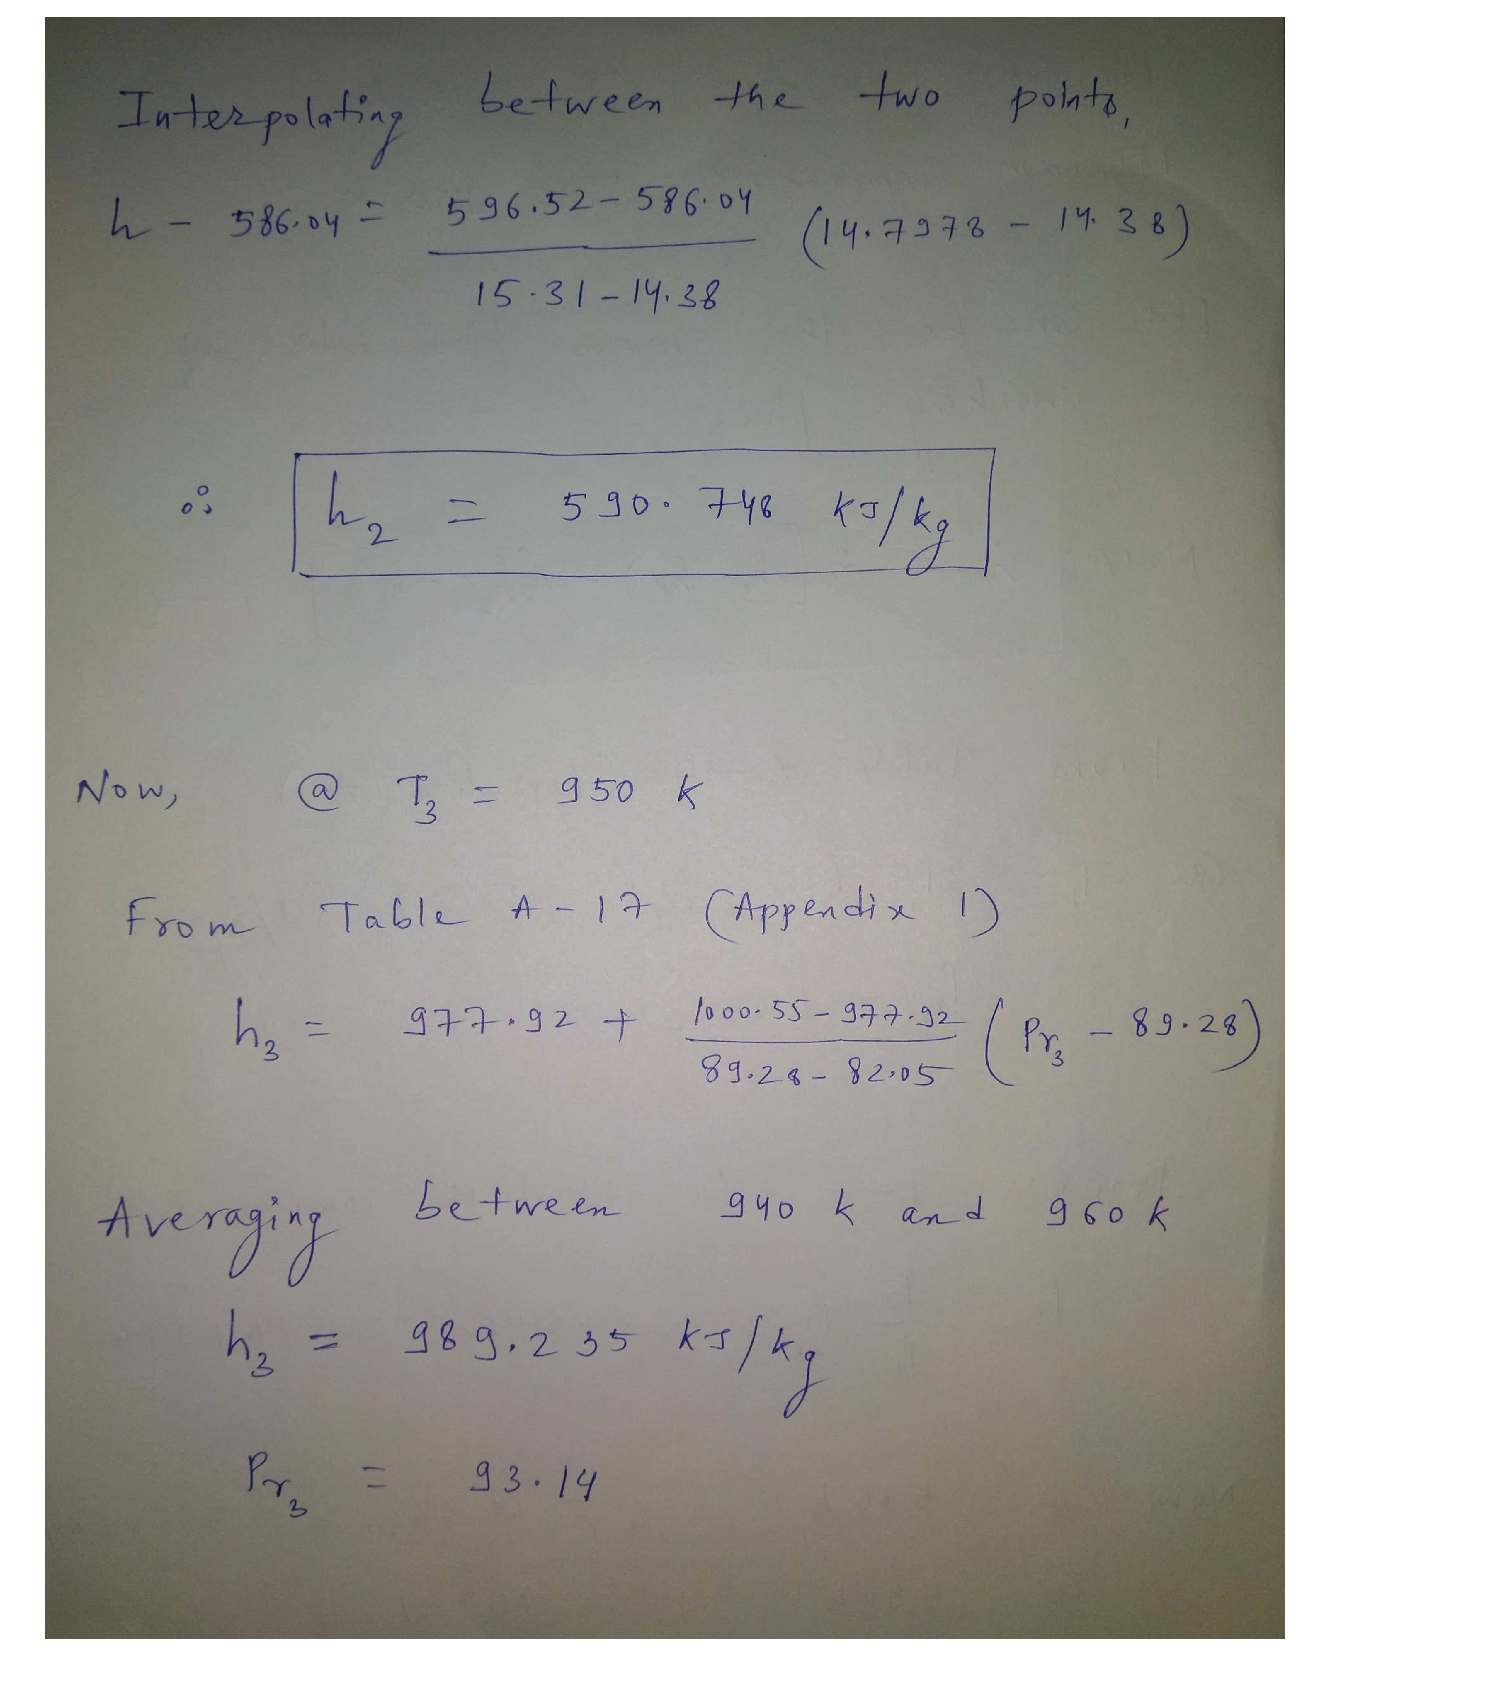 Interpolating between the two points,
h - 586.04 = 596.52 - 586.04 / 15.31 - 14.38 (14.7978 - 14.38)
∴ h₂ = 590.748 kJ/kg
Now, @ T₃ = 950 K
From Table A-17 (Appendix 1)
h₃ = 977.92 + 1000.55 - 977.92 / 89.28 - 82.05 (Pr₃ - 89.28)
Averaging between 940 K and 960 K
h₃ = 989.235 kJ/kg
Pr₃ = 93.14